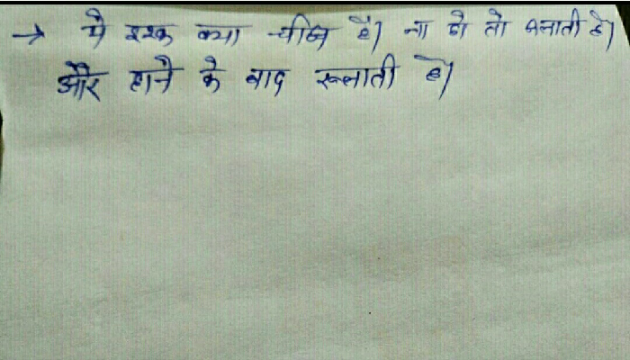 → ये इश्क क्या चीज है। ना हो तो सताती है।
और होने के बाद रूलाती है।